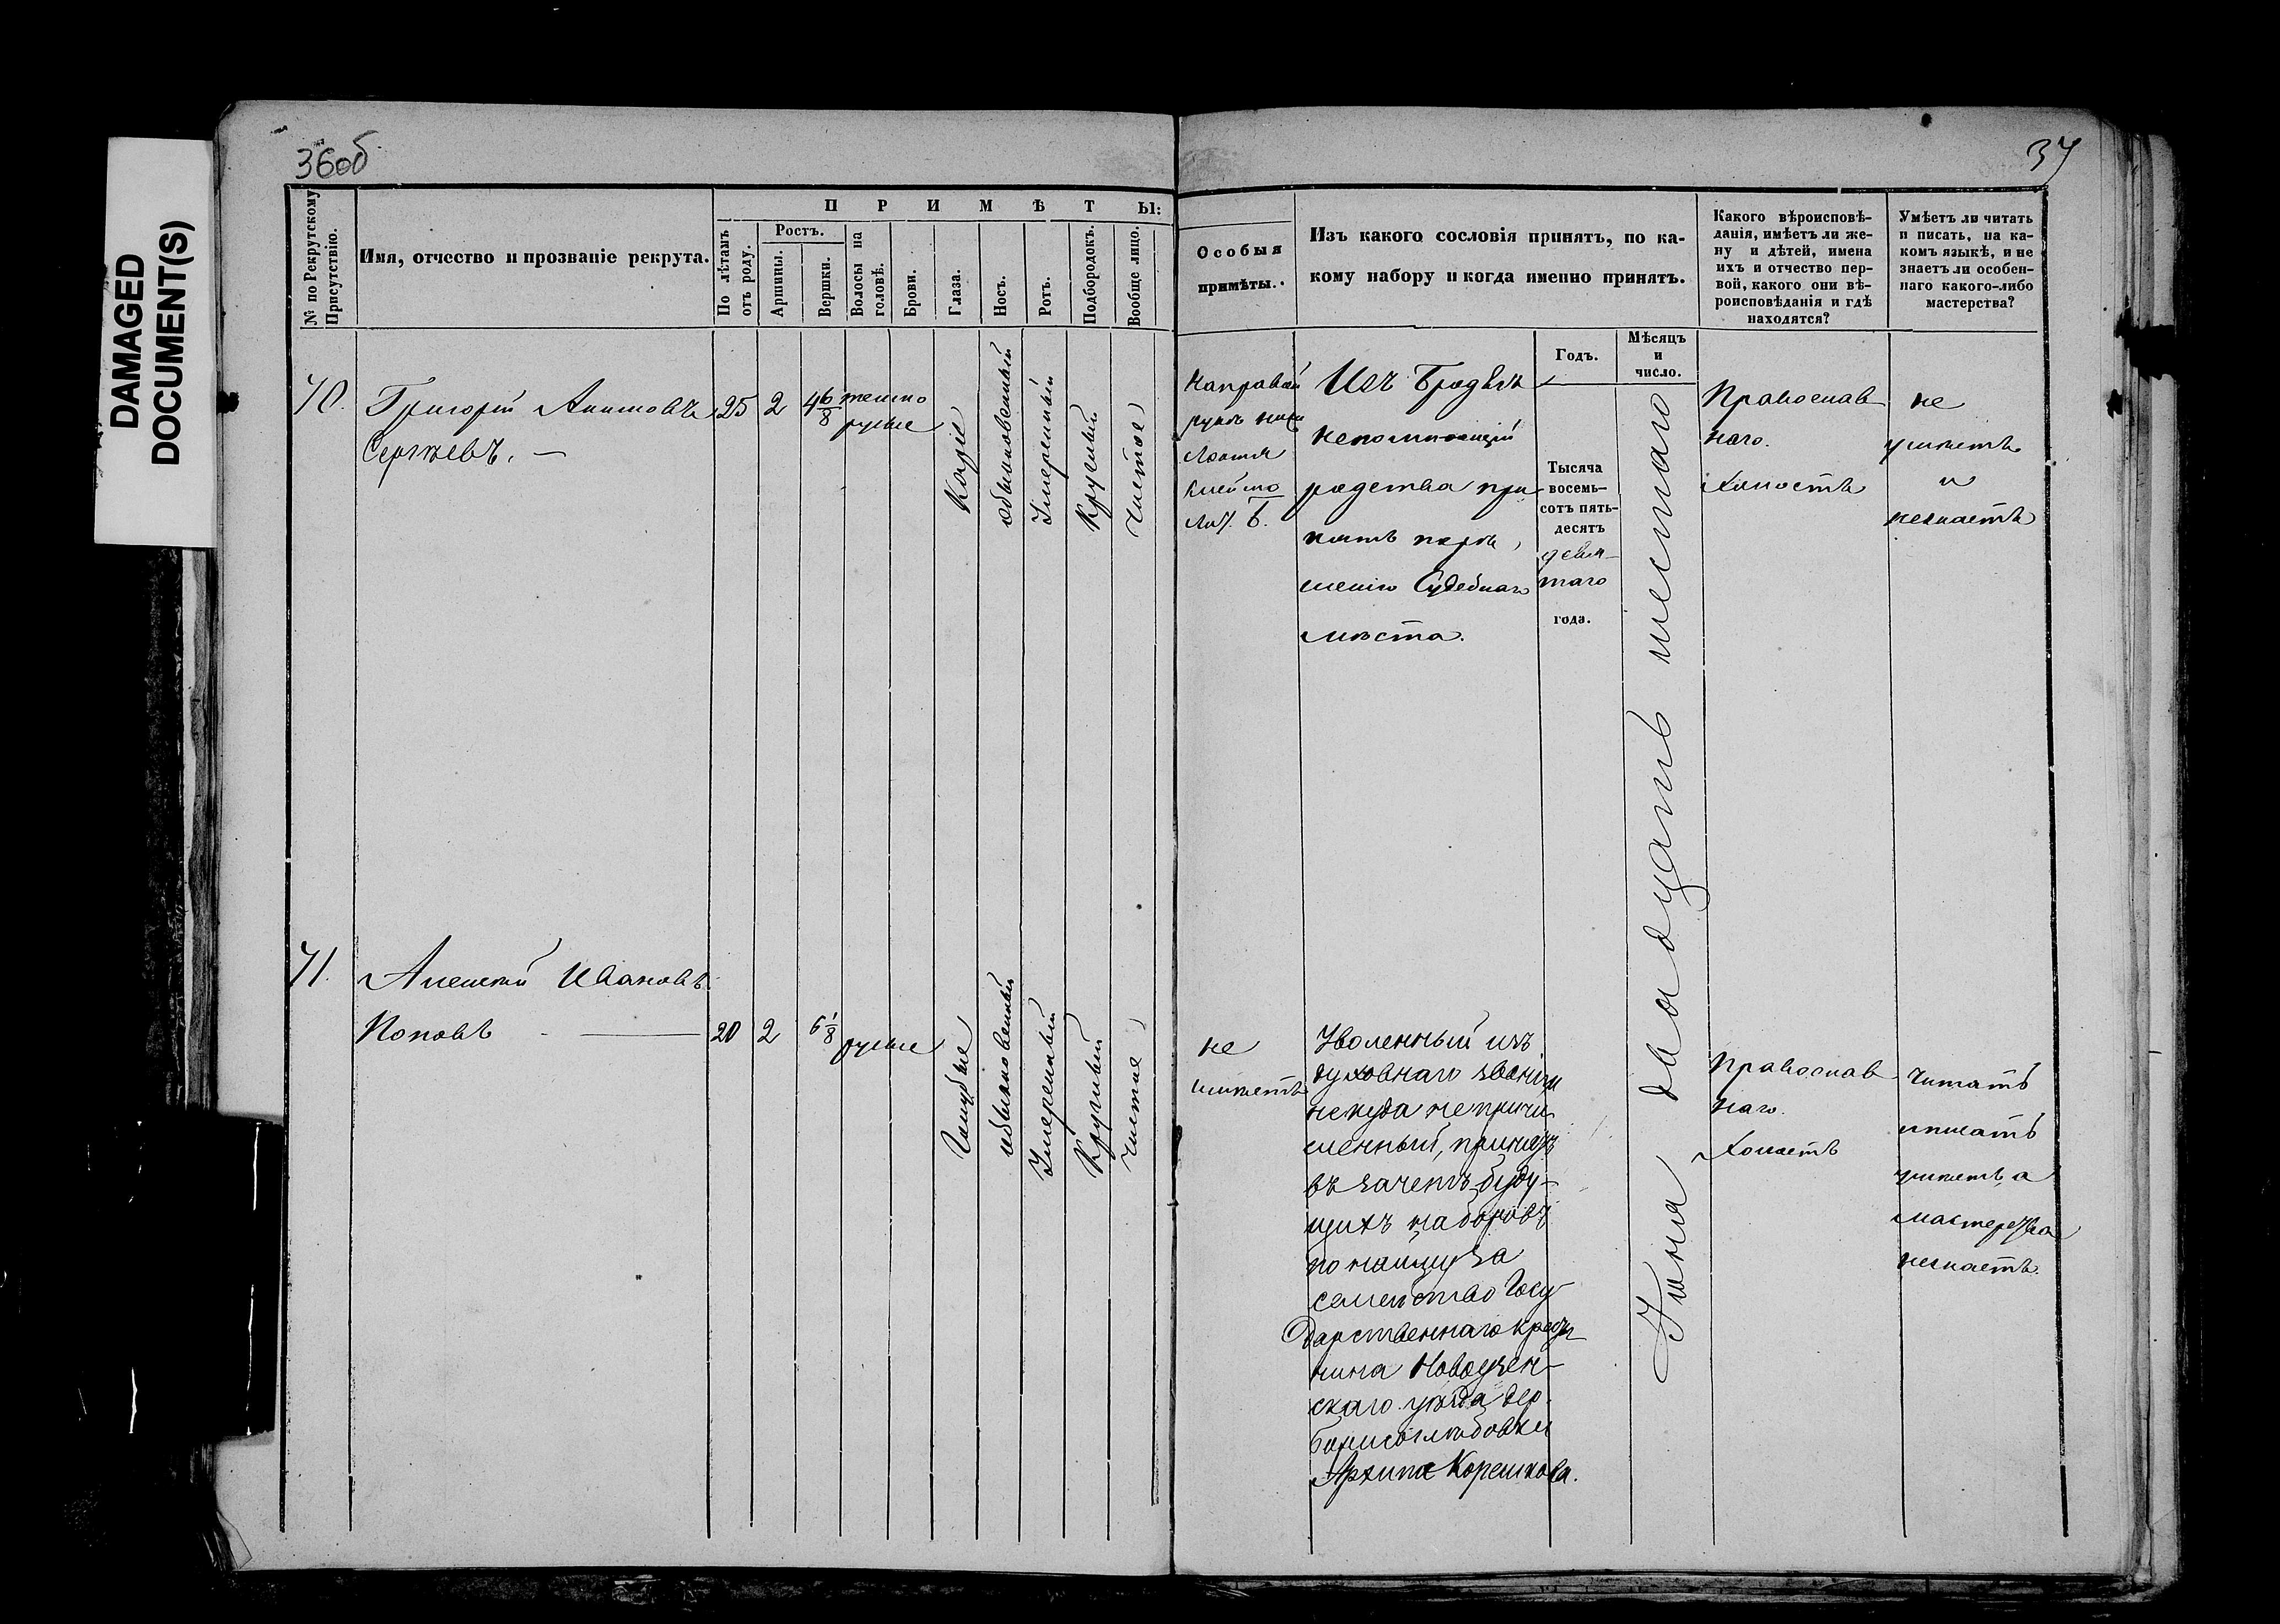 DAMAGED
DOCUMENT(S)
36об
37
№ по Рекрутскому Присутствію.
Имя, отчество и прозваніе рекрута.
ПРИМѢТЫ:
По лѣтамъ отъ роду.
Ростъ.
Аршины.
Вершки.
Волосы на головѣ.
Брови.
Глаза.
Носъ.
Ротъ.
Подбородокъ.
Вообще лицо.
Особыя
примѣты.
Изъ какого сословія принятъ, по ка-
кому набору и когда именно принятъ.
Какого вѣроисповѣ-
данія, имѣетъ ли же-
ну и дѣтей, имена
ихъ и отчество пер-
вой, какого они вѣ-
роисповѣданія и гдѣ
находятся?
Умѣетъ ли читать
и писать, на ка-
комъ языкѣ, и не
знаетъ ли особен-
наго какого-либо
мастерства?
Годъ.
Мѣсяцъ
и
число.
70.
Григорій Акимовъ
Сергѣевъ. —
25
2
4 6/8
темно
русые
Каріе
Обыкновенный
Умѣренный
Круглый
Чистое
На правой
рукѣ ниже
локтя
клеймо
лит. Б.
Изъ Бродягъ
непомнющій
родства при
нятъ порѣ
шенію Судебнаго
мѣста.
Тысяча
восемь-
сотъ пять-
десятъ
девя-
таго
года.
Іюня двадцать шестаго
Православ
наго.
Холостъ
не
умѣетъ
и
незнаетъ
71.
Алексѣй Ивановъ
Поповъ
20
2
6 1/8
русые
Голубые
обыкновенный
Умѣренный
Круглый
Чистое
не
имѣетъ
Уволенный изъ
духовнаго званія и
некуда не причи
сленный, принятъ
въ зачетъ буду-
щихъ наборовъ
по найму за
семейство Госу
дарственнаго кресть
нина Новоузен-
скаго уѣзда дер.
Борисоглѣбовки
Архипа Корешкова.
Православ
наго.
Холостъ
Читать
иписать
умѣетъ, а
мастерства
незнаетъ.